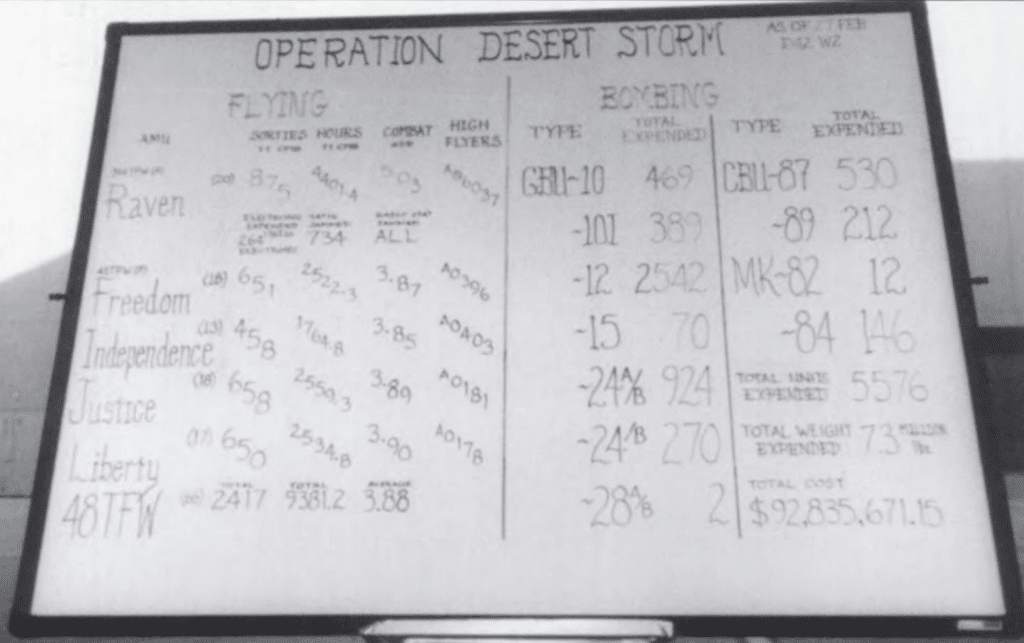 OPERATION DESERT STORM
AS OF 27 FEB
FLYING
AMU SORTIES HOURS COMBAT HIGH FLYERS
Raven (20) 875 4401.4 5.03 A86037
EXPENDED
264 734 ALL
Freedom (18) 651 2522.3 3.87 A0396
Independence (13) 458 1764.8 3.85 A0403
Justice (18) 658 2559.3 3.89 A0181
Liberty (17) 650 2534.8 3.90 A0178
TOTAL TOTAL AVERAGE
48TFW (66) 2417 9381.2 3.88
BOMBING
TYPE TOTAL EXPENDED
GBU-10 469
-101 389
-12 2542
-15 70
-24A/B 924
-24/B 270
-28A/B 2
TYPE TOTAL EXPENDED
CBU-87 530
-89 212
MK-82 12
-84 146
TOTAL UNITS EXPENDED 5576
TOTAL WEIGHT EXPENDED 7.3 MILLION lbs
TOTAL COST
$92,835,671.15